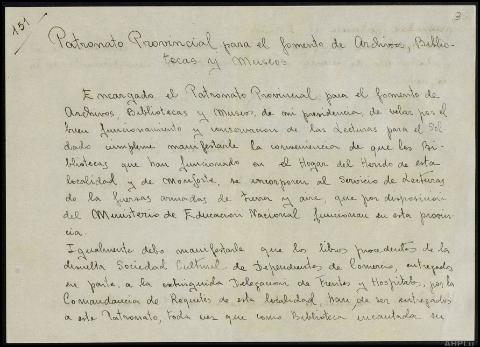 151
3
Patronato Provincial para el fomento de Archivos, Biblio-
tecas y Museos.
Encargado el Patronato Provincial para el fomento de
Archivos, Bibliotecas y Museos, de mi presidencia, de velar por el
buen funcionamiento y conservacion de las Lecturas para el Sol-
dado cumpleme manifestarle la conveniencia de que las Bi-
bliotecas que han funcionado en el Hogar del Herido de esta
localidad y de Monforte, se incorporen al Servicio de Lecturas
de la fuerzas armadas de Tierra y aire, que por disposicion
del Ministerio de Educacion Nacional funcionan en esta provin-
cia.
Igualmente debo manifestarle que los libros procedentes de la
disuelta Sociedad Cultural de Dependientes de Comercio, entregados
en parte, a la extinguida Delegacion de Frentes y Hospitales, por la
Comandancia de Requetes de esta localidad, han de ser entregados
a este Patronato, toda vez que como Biblioteca incautada su
AHPLU